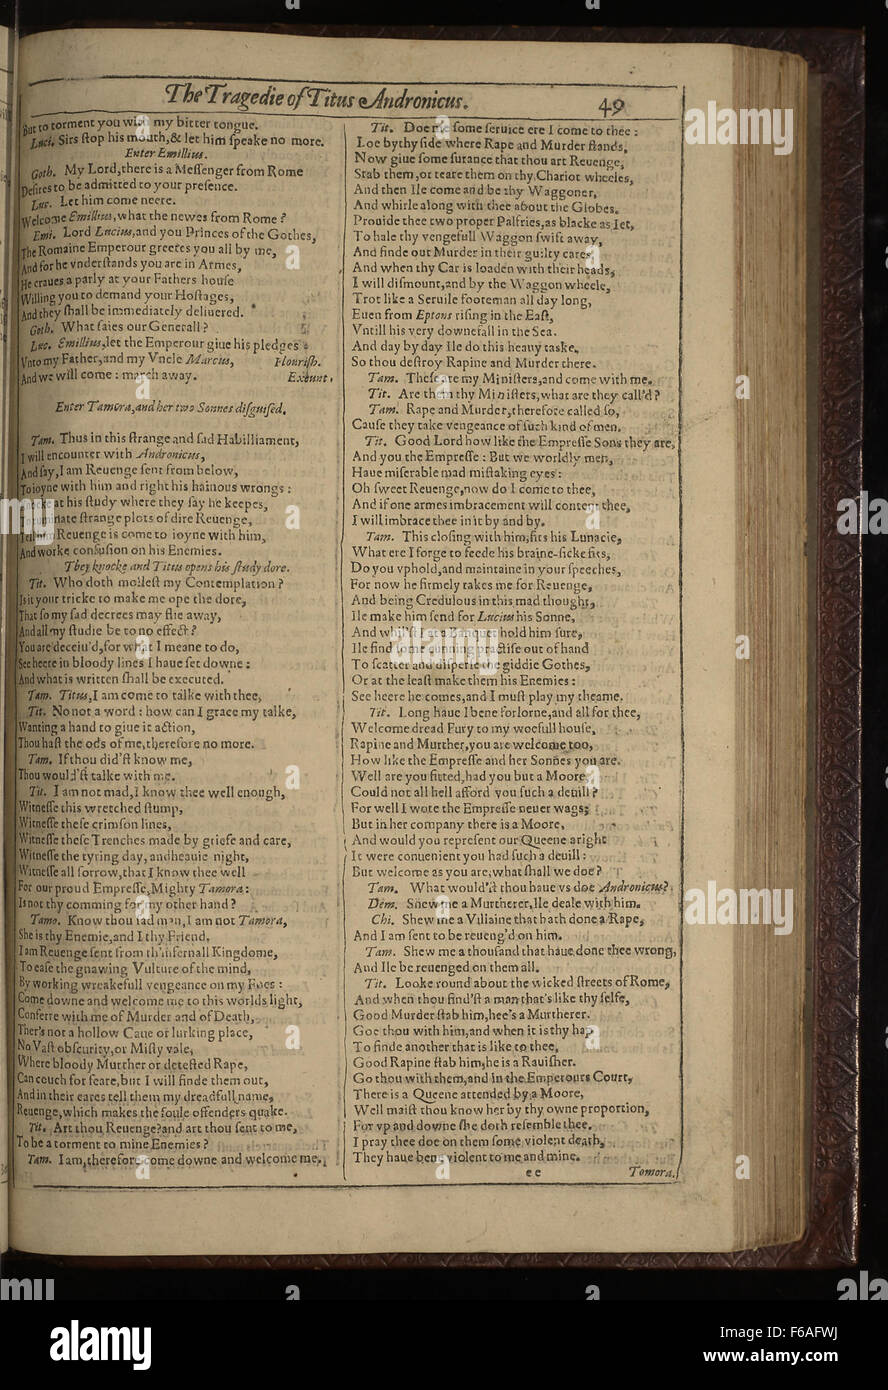 The Tragedie of Titus Andronicus.
49
But to torment you with my bitter tongue.
Luci. Sirs ſtop his mouth,& let him ſpeake no more.
Enter Emillius.
Goth. My Lord,there is a Meſſenger from Rome
Deſires to be admitted to your preſence.
Luc. Let him come neere.
Welcome Emillius,what the newes from Rome?
Emi. Lord Lucius,and you Princes of the Gothes,
The Romaine Emperour greetes you all by me,
And for he vnderſtands you are in Armes,
He craues a parly at your Fathers houſe
Willing you to demand your Hoſtages,
And they ſhall be immediately deliuered.
Goth. What ſaies our Generall?
Luc. Emillius,let the Emperour giue his pledges
Vnto my Father,and my Vncle Marcus, Flouriſh.
And we will come : march away. Exeunt.
Enter Tamora,and her two Sonnes diſguiſed.
Tam. Thus in this ſtrange and ſad Habilliament,
I will encounter with Andronicus,
And ſay,I am Reuenge ſent from below,
To ioyne with him and right his hainous wrongs :
Knocke at his ſtudy where they ſay he keepes,
To ruminate ſtrange plots of dire Reuenge,
Tell him Reuenge is come to ioyne with him,
And worke confuſion on his Enemies.
They knocke and Titus opens his ſtudy dore.
Tit. Who doth molleſt my Contemplation?
Is it your tricke to make me ope the dore,
That ſo my ſad decrees may flie away,
And all my ſtudie be to no effect?
You are deceiu'd,for what I meane to do,
See heere in bloody lines I haue ſet downe :
And what is written ſhall be executed.
Tam. Titus,I am come to talke with thee,
Tit. No not a word : how can I grace my talke,
Wanting a hand to giue it action,
Thou haſt the ods of me,therefore no more.
Tam. If thou did'ſt know me,
Thou would'ſt talke with me.
Tit. I am not mad,I know thee well enough,
Witneſſe this wretched ſtump,
Witneſſe theſe crimſon lines,
Witneſſe theſe Trenches made by griefe and care,
Witneſſe the tyring day,and heauie night,
Witneſſe all ſorrow,that I know thee well
For our proud Empreſſe,Mighty Tamora :
Is not thy comming for my other hand?
Tamo. Know thou ſad man,I am not Tamora,
She is thy Enemie,and I thy Friend,
I am Reuenge ſent from th'infernall Kingdome,
To eaſe the gnawing Vulture of the mind,
By working wreakefull vengeance on my Foes :
Come downe and welcome me to this worlds light,
Conferre with me of Murder and of Death,
Ther's not a hollow Caue or lurking place,
No Vaſt obſcurity,or Miſty vale,
Where bloody Murther or deteſted Rape,
Can couch for feare,but I will finde them out,
And in their eares tell them my dreadfull name,
Reuenge,which makes the foule offenders quake.
Tit. Art thou Reuenge?and art thou ſent to me,
To be a torment to mine Enemies?
Tam. I am,therefore come downe and welcome me.
Tit. Doe me ſome ſeruice ere I come to thee :
Loe by thy ſide where Rape and Murder ſtands,
Now giue ſome ſurance that thou art Reuenge,
Stab them,or teare them on thy Chariot wheeles,
And then Ile come and be thy Waggoner,
And whirle along with thee about the Globes.
Prouide thee two proper Palfries,as blacke as Iet,
To hale thy vengefull Waggon ſwift away,
And finde out Murder in their guilty cares.
And when thy Car is loaden with their heads,
I will diſmount,and by the Waggon wheele,
Trot like a Seruile footeman all day long,
Euen from Eptons riſing in the Eaſt,
Vntill his very downefall in the Sea.
And day by day Ile do this heauy taske,
So thou deſtroy Rapine and Murder there.
Tam. Theſe are my Miniſters,and come with me.
Tit. Are them thy Miniſters,what are they call'd?
Tam. Rape and Murder,therefore called ſo,
Cauſe they take vengeance of ſuch kind of men.
Tit. Good Lord how like the Empreſſe Sons they are,
And you the Empreſſe : But we worldly men,
Haue miſerable mad miſtaking eyes :
Oh ſweet Reuenge,now do I come to thee,
And if one armes imbracement will content thee,
I will imbrace thee in it by and by.
Tam. This cloſing with him,fits his Lunacie,
What ere I forge to feede his braine-ſicke fits,
Do you vphold,and maintaine in your ſpeeches,
For now he firmely takes me for Reuenge,
And being Credulous in this mad thought,
Ile make him ſend for Lucius his Sonne,
And whil'ſt I at a Banquet hold him ſure,
Ile find ſome cunning practiſe out of hand
To ſcatter and diſperſe the giddie Gothes,
Or at the leaſt make them his Enemies :
See heere he comes,and I muſt play my theame.
Tit. Long haue I bene forlorne,and all for thee,
Welcome dread Fury to my woefull houſe,
Rapine and Murther,you are welcome too,
How like the Empreſſe and her Sonnes you are.
Well are you fitted,had you but a Moore,
Could not all hell afford you ſuch a deuill?
For well I wote the Empreſſe neuer wags;
But in her company there is a Moore,
And would you repreſent our Queene aright
It were conuenient you had ſuch a deuill :
But welcome as you are,what ſhall we doe?
Tam. What would'ſt thou haue vs doe Andronicus?
Dem. Shew me a Murtherer,Ile deale with him.
Chi. Shew me a Villaine that hath done a Rape,
And I am ſent to be reueng'd on him.
Tam. Shew me a thouſand that haue done thee wrong,
And Ile be reuenged on them all.
Tit. Looke round about the wicked ſtreets of Rome,
And when thou find'ſt a man that's like thy ſelfe,
Good Murder ſtab him,hee's a Murtherer.
Goe thou with him,and when it is thy hap
To finde another that is like to thee,
Good Rapine ſtab him,he is a Rauiſher.
Go thou with them,and in the Emperours Court,
There is a Queene attended by a Moore,
Well maiſt thou know her by thy owne proportion,
For vp and downe ſhe doth reſemble thee.
I pray thee doe on them ſome violent death,
They haue bene violent to me and mine.
e e Tomora.
alamy
a
alamy stock photo
Image ID: F6AFWJ
www.alamy.com